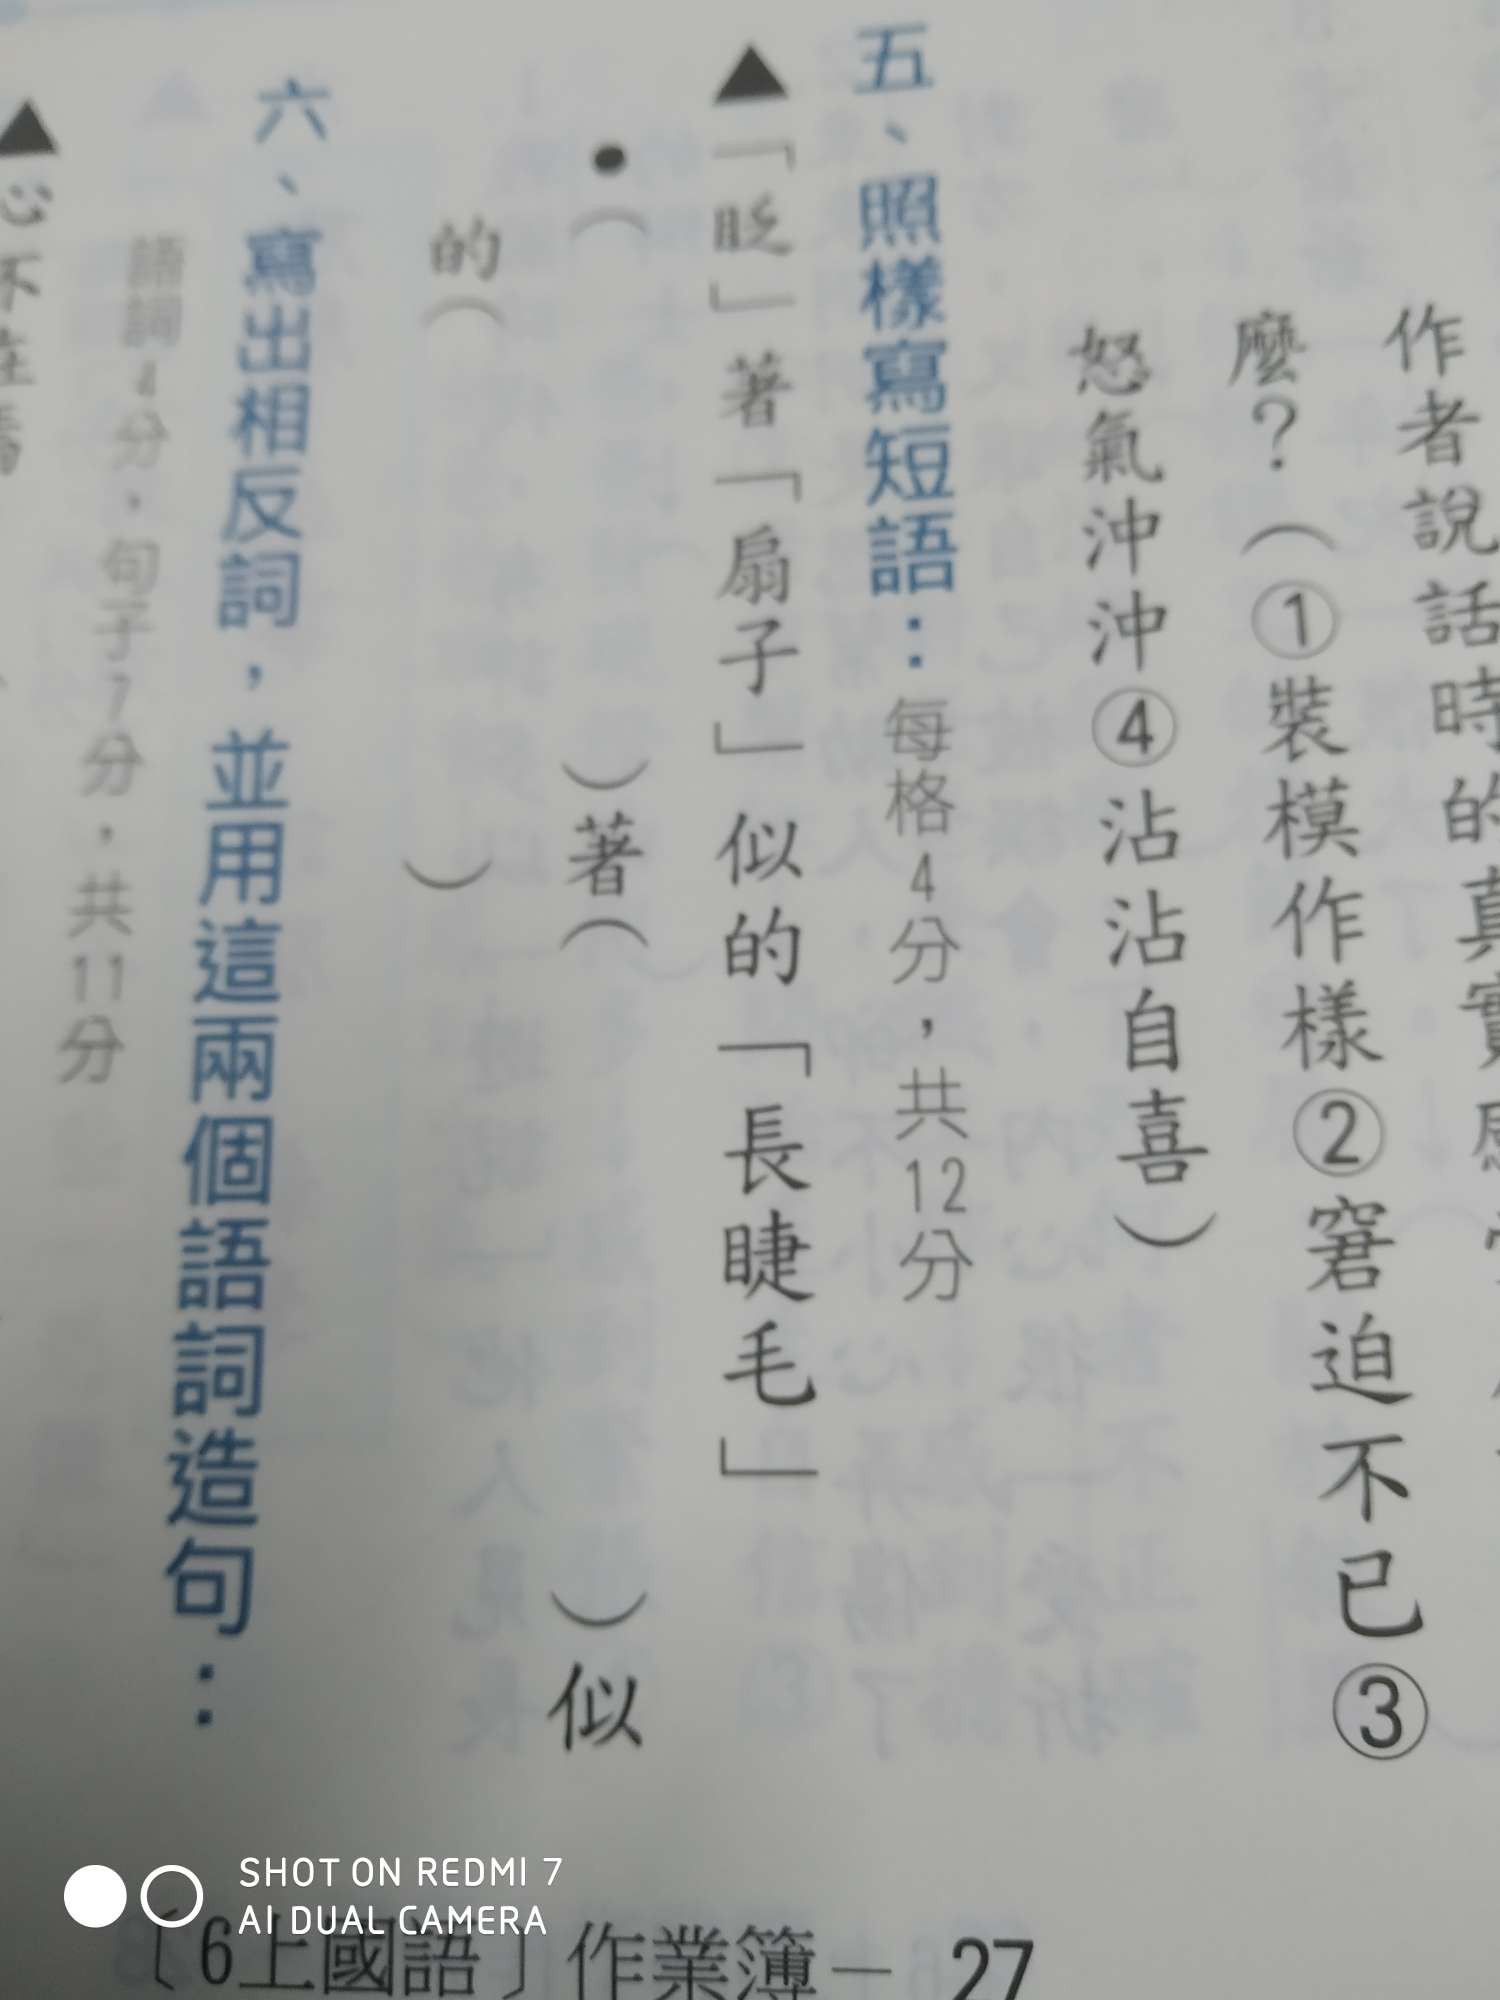 作者說話時的真實
麼？（①裝模作樣②窘迫不已③
怒氣沖沖④沾沾自喜）
五、照樣寫短語：每格4分，共12分
▲「眨」著「扇子」似的「長睫毛」
•（　　）著（　　）似
的（　　）
六、寫出相反詞，並用這兩個語詞造句：
語詞4分，句子7分，共11分
▲心不在焉
SHOT ON REDMI 7
AI DUAL CAMERA
〔6上國語〕作業簿－27